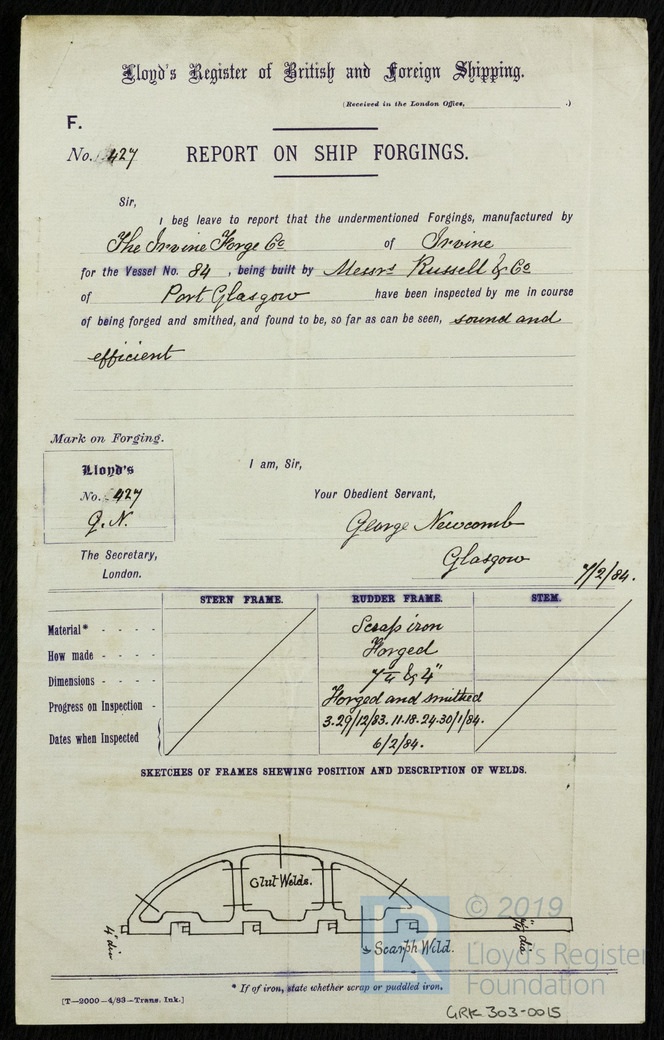 Lloyd's Register of British and Foreign Shipping.
(Received in the London Office, .)
F.
No. 427 REPORT ON SHIP FORGINGS.
Sir,
I beg leave to report that the undermentioned Forgings, manufactured by
The Irvine Forge Co of Irvine
for the Vessel No. 84 , being built by Messrs Russell & Co
of Port Glasgow have been inspected by me in course
of being forged and smithed, and found to be, so far as can be seen, sound and
efficient
Mark on Forging.
Lloyd's
No. 427
G.N.
I am, Sir,
Your Obedient Servant,
George Newcomb
Glasgow
7/2/84.
The Secretary,
London.
STERN FRAME. RUDDER FRAME. STEM.
Material* - - - - Scrap iron
How made - - - - Forged
Dimensions - - - - 7¼ & 4"
Progress on Inspection - Forged and smithed
Dates when Inspected 3.29/12/83. 11.18.24.30/1/84.
6/2/84.
SKETCHES OF FRAMES SHEWING POSITION AND DESCRIPTION OF WELDS.
Glut Welds.
4" dia
Scarph Weld.
7¼" dia
* If of iron, state whether scrap or puddled iron.
[T—2000—4/83—Trans. Ink.]
LR
© 2019
Lloyd's Register
Foundation
GRK 303-0015